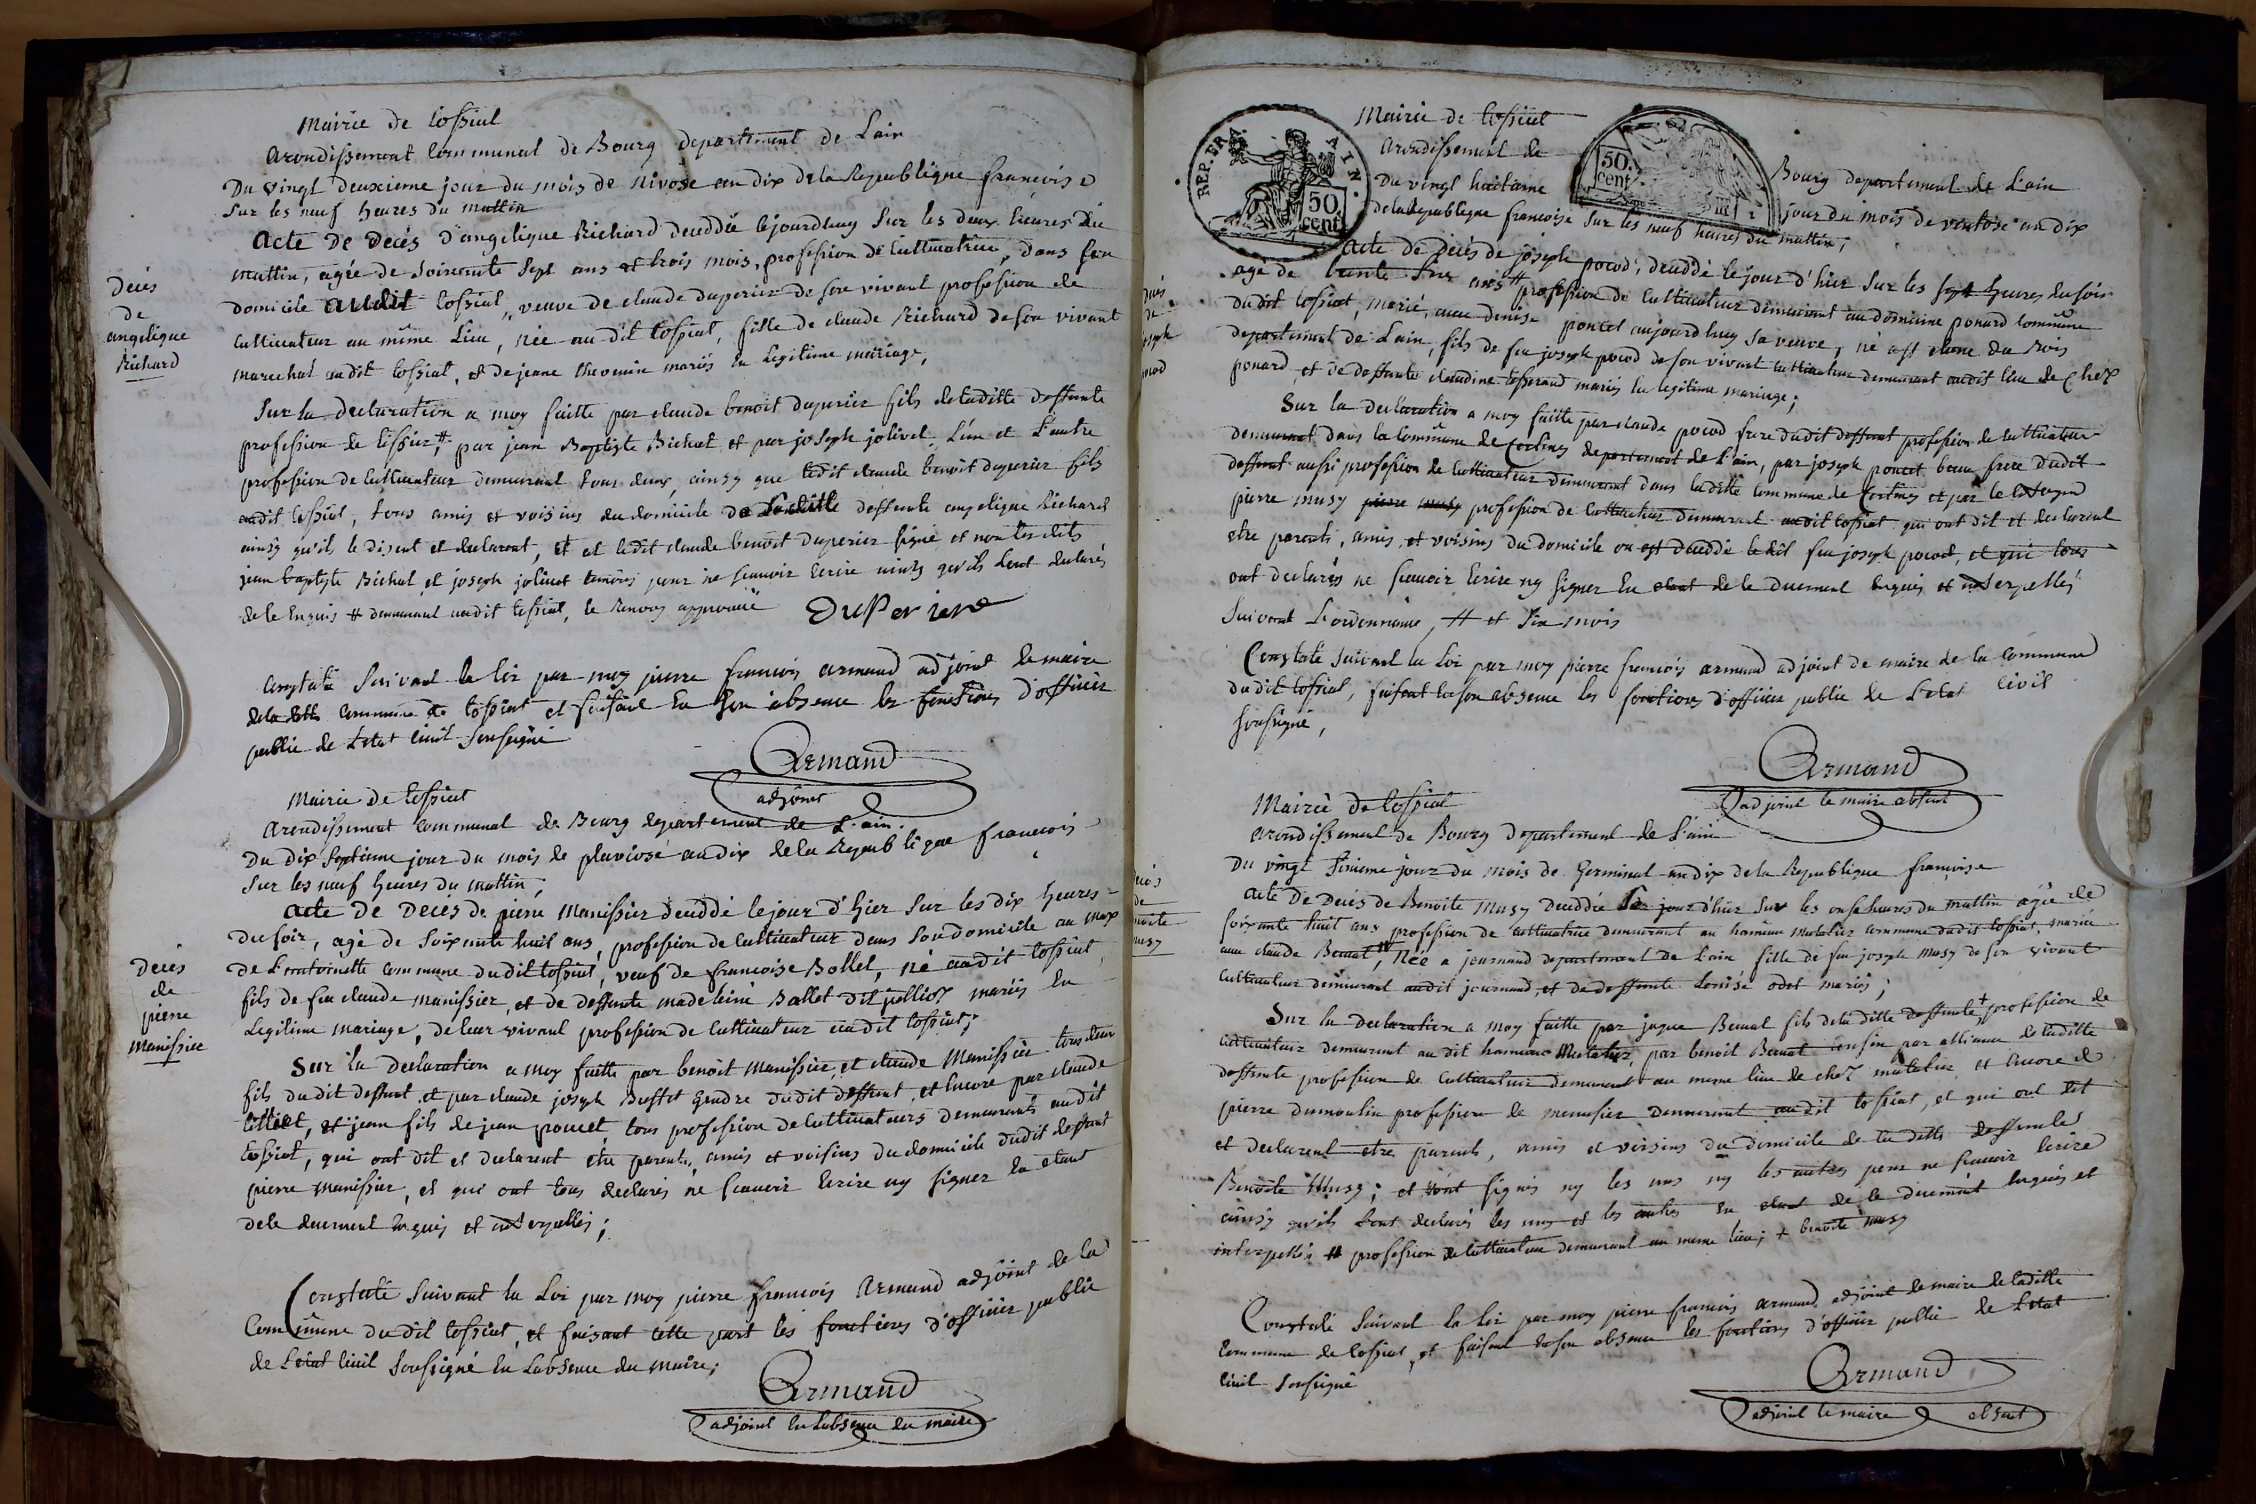 Mairie de Cossiat
arondissement Communal de Bourg departement de Lain
Du vingt deuxieme jour du mois de Nivose an dix de la Republique francoise
Sur les neuf heures du mattin
acte de deces d'angelique Richard deceddée cejourdhuy Sur les deux heures du
mattin, agée de Soixente Sept ans et trois mois, profession de Cultivatrice, dans son
domicile audit Cossiat, veuve de claude duperier de son vivant profession de
Cultivateur au même Lieu, née au dit Cossiat, fille de claude Richard de son vivant
marechal audit Cossiat, et de jeane thevenin mariés en Legitime mariage,
deces
de
angelique
Richard
Sur la declaration a moy faitte par claude benoit duperier fils deladitte deffunte
profession de tissier # par jean Baptiste Bichat et par joseph jolivet L'un et L'autre
profession de Cultivateur demeurant tous deux, ainsy que ledit claude benoit duperier fils
audit Cossiat, tous amis et voisins du domicile de Laditte deffunte angelique Richard
ainsy qu'ils le disent et declarent, et et ledit claude benoit duperier signé et non les dits
jean baptiste Bichat et joseph jolivet temoins pour ne scavoir Ecrire ainsy qu'ils Lont declarés
de le Enquis # demeurant audit Cossiat, le Renvoy approuvé DuPeriere
Constaté Suivant la loi par moy pierre francois armand adjoint de maire
de la ditte Commune de Cossiat et faisant En Son absence les fonctions d'officier
public de Letat Civil Soussigné
Armand
adjoint
Mairie de Cossiat
Arondissement Communal de Bourg departement de L'ain.
Du dix Septieme jour du mois de pluviose an dix de la Republique francois
Sur les neuf heures du mattin,
acte de Deces de pierre Manissier deceddé le jour d'hier Sur les dix heures
du soir, agé de Soixente huit ans, profession de Cultivateur dans Son domicile au
de Commune dudit Cossiat, veuf de francoise Bollet, né audit Cossiat
fils de feu claude manissier, et de deffunte madeleine Ballet dit mariés En
Legitime mariage, de leur vivant profession de Cultivateur audit Cossiat;
deces
de
pierre
Manissier
Sur la declaration a moy faitte par benoit Manissier, et claude Manissier tous deux
fils du dit deffunt, et par claude joseph Buffet Gendre dudit deffunt, et Encore par claude
et jean fils de jean poncet, tous profession de Cultivateurs demeurants audit
Cossiat, qui ont dit et declarent etre parents, amis et voisins du domicile dudit deffunt
pierre Manissier, et qui ont tous declarés ne scavoir Ecrire ny signer En etant
dele duement Enquis et interpellés;
Constaté Suivant la Loi par moy pierre francois Armand adjoint de la
Commune dudit Cossiat, et faisant cette part les fonctions d'officier public
de Letat Civil Soussigné En Labsence du maire;
Armand
adjoint En Labsence du maire
REP. FRA.
AIN.
50
cent
50.
cent
Mairie de Cossiat
Arondissement de Bourg departement de L'ain
Du vingt huitieme jour du mois de ventose an dix
dela Republique francoise Sur les neuf heures du mattin;
acte de Deces de joseph pocod, deceddé le jour d'hier Sur les sept heures du soir
agé de trente Six ans # profession de Cultivateur demeurant au domaine ponard Commune
dudit Cossiat, marié, avec denise poncet aujourdhuy sa veuve, né a
departement de L'ain, fils de feu joseph pocod de son vivant Cultivateur demeurant audit lieu de Chez
ponard, et de deffunte claudine mariés En legitime mariage;
Sur la declaration a moy faitte par claude pocod frere dudit deffunt profession de Cultivateur
demeurant dans la Commune de Certines departement de L'ain, par joseph poncet beau frere dudit
deffunt aussi profession de Cultivateur demeurant dans laditte Commune de Certines et par le Citoyen
pierre musy pierre musy profession de Cultivateur demeurant audit Cossiat qui ont dit et declarent
etre parents, amis, et voisins du domicile ou est deceddé ledit feu joseph pocod, et qui tous
ont declarés ne scavoir Ecrire ny signer En etant de le duement Enquis et interpellés
Suivant L'ordonnance, # et Six mois
Constaté suivant la Loi par moy pierre francois armand adjoint de maire de la Commune
dudit Cossiat, faisant En son absence les fonctions d'officier public de Letat Civil
Soussigné,
Armand
adjoint le maire absent
Mairie de Cossiat
arondissement de Bourg departement de L'ain
Du vingt Sixieme jour du mois de Germinal an dix de la Republique francoise
acte de Deces de Benoite Musy deceddée Le jour d'hier sur les onze heures du mattin agée de
soixante huit ans profession de Cultivatrice demeurant au hameau Commune dudit Cossiat, mariée
avec claude #, Née a journand departement de Lain fille de feu joseph Musy de son vivant
Cultivateur demeurant audit journand, et de deffunte Louise odet mariés;
Sur la declaration a moy faitte par jaque fils de la ditte deffunte + profession de
Cultivateur demeurant au dit hameau par benoit Cousin par alliance de laditte
deffunte profession de Cultivateur demeurant au meme lieu de chez et Encore de
pierre dumoulin profession de menusier demeurant audit Cossiat, et qui ont dit
et declarent etre parents, amis et voisins du domicile de la ditte deffunte
Benoite Musy; et nont signés ny les uns ny les autres pour ne scavoir Ecrire
ainsy qu'ils Lont declarés les uns et les autres En etant de le duement Enquis et
interpellés # profession de Cultivateur demeurant au meme lieu; + benoite musy
Constaté Suivant la loi par moy pierre francois armand, adjoint de maire de laditte
Commune de Cossiat, et faisant En son absence les fonctions d'officier public de Letat
Civil Soussigné
Armand
adjoint le maire absent